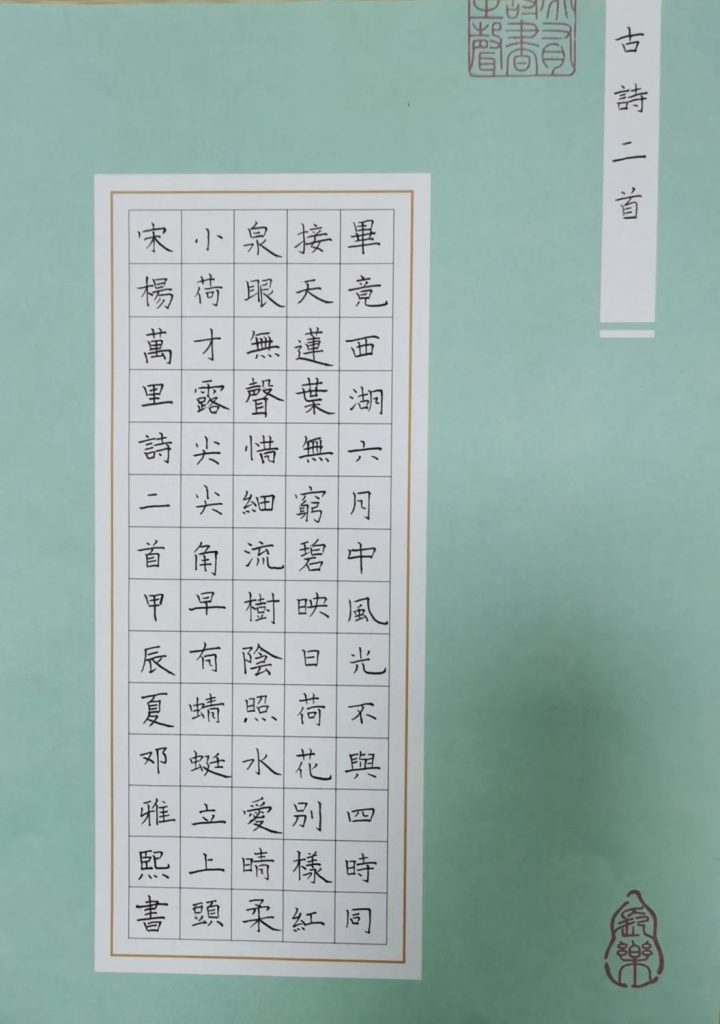 古詩二首
畢竟西湖六月中風光不與四時同
接天蓮葉無窮碧映日荷花別樣紅
泉眼無聲惜細流樹陰照水愛晴柔
小荷才露尖尖角早有蜻蜓立上頭
宋楊萬里詩二首甲辰夏邓雅熙書